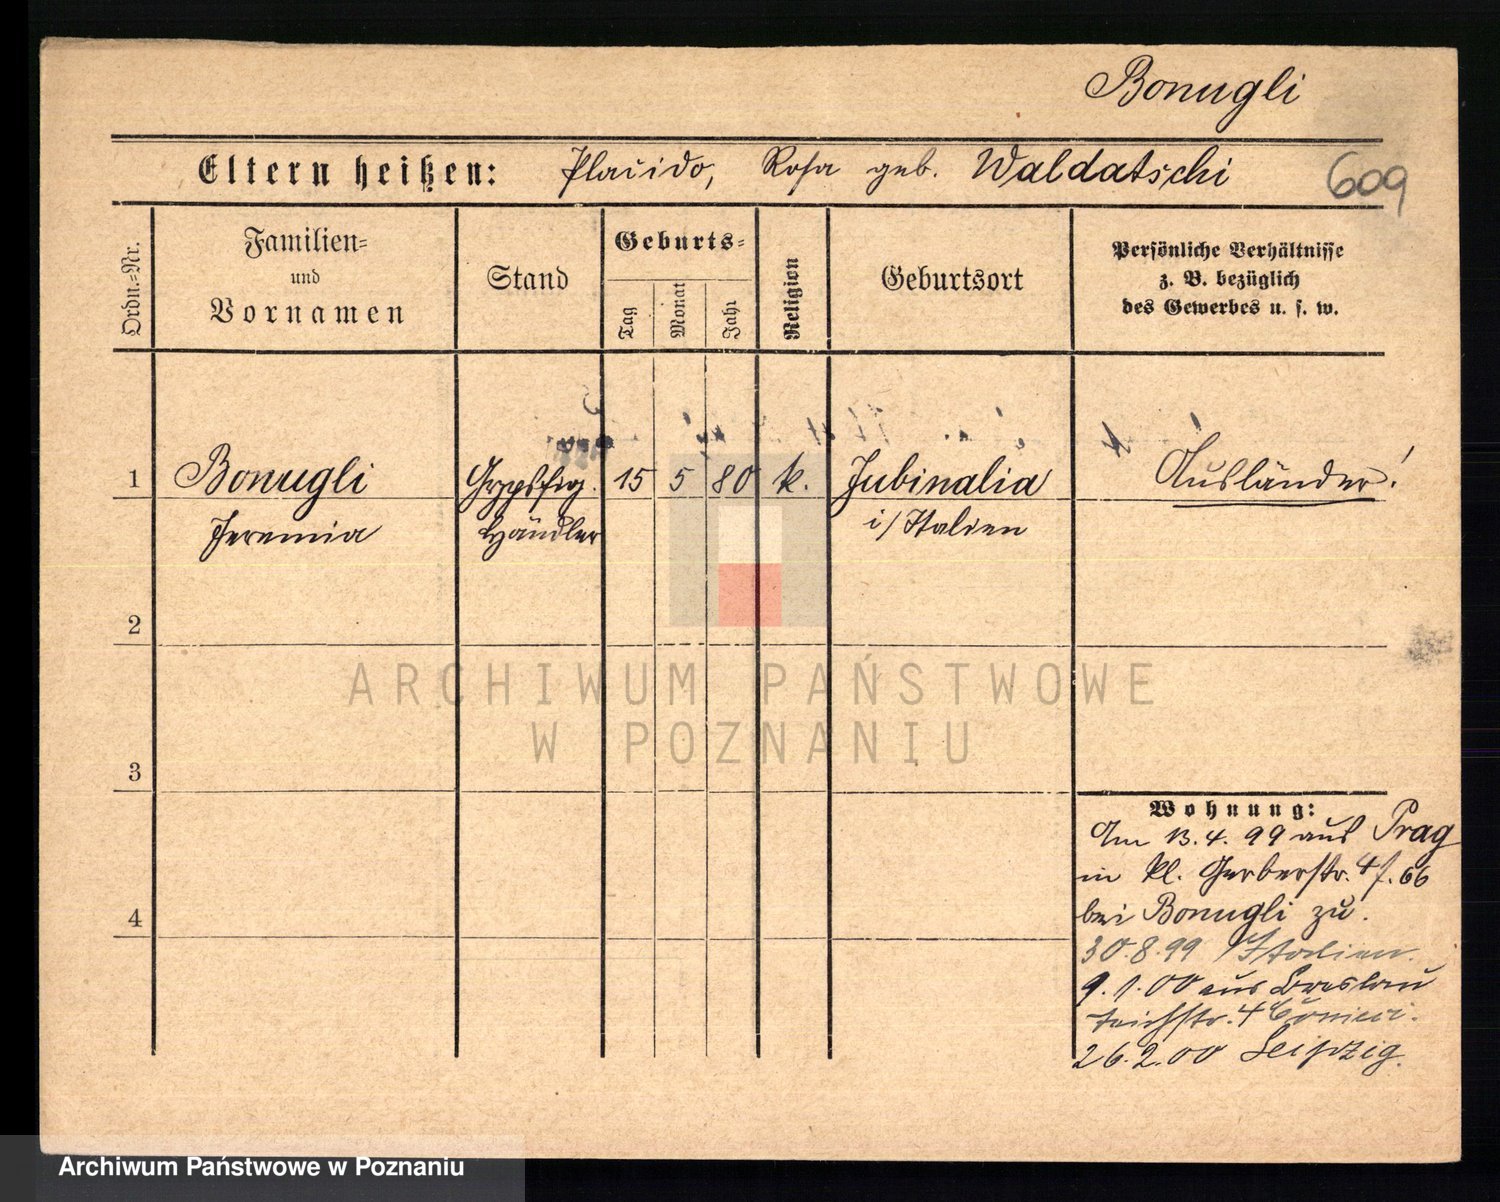 Bonugli
Eltern heißen: Placido, Rosa geb. Waldatschi
609
Ordn.-Nr.
Familien-
und
Vornamen
Stand
Geburts-
Tag
Monat
Jahr
Religion
Geburtsort
Persönliche Verhältnisse
z. B. bezüglich
des Gewerbes u. s. w.
1 Bonugli Gypsfig. 15 5 80 k. Jubinalia Ausländer!
Jeremia Händler i/Italien
2
ARCHIWUM PAŃSTWOWE
W POZNANIU
3
Wohnung:
Am 13.4.99 aus Prag
in kl. Gerberstr. 4 f. 66
4
bei Bonugli zu.
30.8.99 Italien.
9.1.00 aus Breslau
Teichstr. 4
26.2.00 Leipzig.
Archiwum Państwowe w Poznaniu